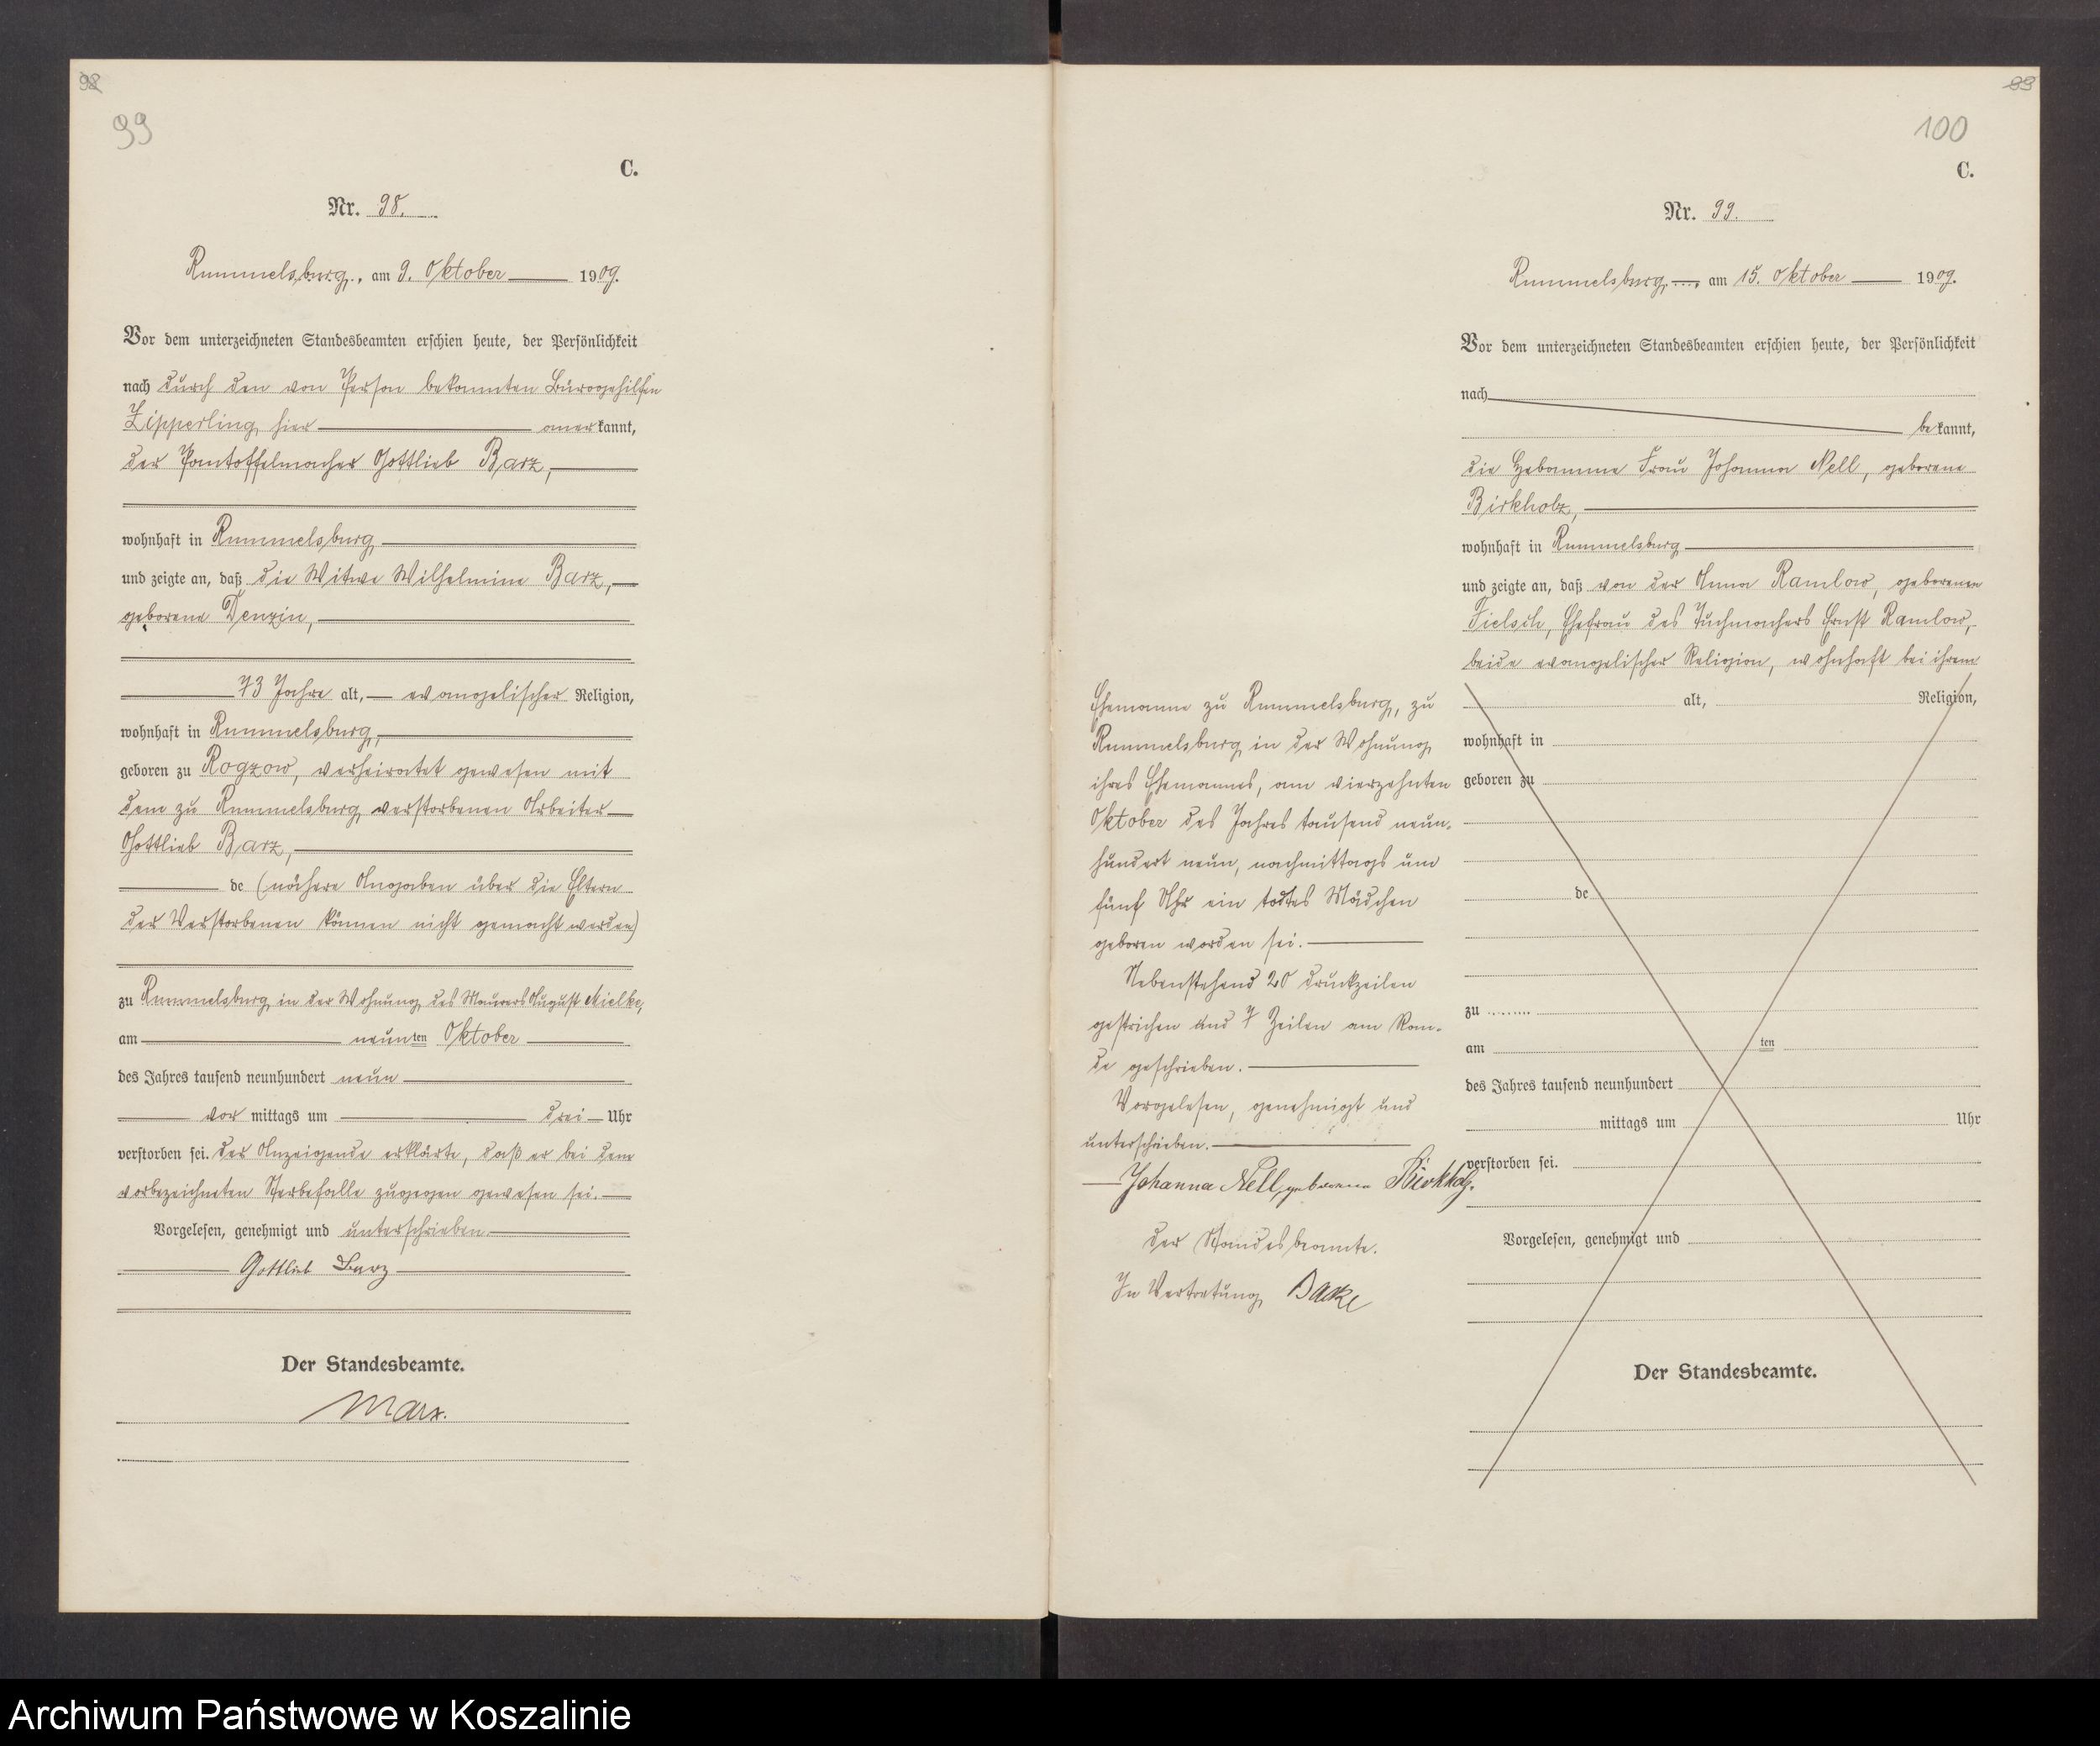 98
99
C.
Nr. 98.
Rummelsburg, am 9. Oktober 1909.
Vor dem unterzeichneten Standesbeamten erschien heute, der Persönlichkeit
nach durch den von Person bekannten Bürogehilfen
Zipperling hier anerkannt,
der Pantoffelmacher Gottlieb Barz,
wohnhaft in Rummelsburg
und zeigte an, daß die Witwe Wilhelmine Barz,
geborene Denzin,
73 Jahre alt, evangelischer Religion,
wohnhaft in Rummelsburg,
geboren zu Rogzow, verheiratet gewesen mit
dem zu Rummelsburg verstorbenen Arbeiter
Gottlieb Barz,
de (nähere Angaben über die Eltern
der Verstorbenen können nicht gemacht werden)
zu Rummelsburg in der Wohnung des Maurers August Mielke,
am neunten Oktober
des Jahres tausend neunhundert neun
vor mittags um drei Uhr
verstorben sei. Der Anzeigende erklärte, daß er bei dem
vorbezeichneten Sterbefalle zugegen gewesen sei.
Vorgelesen, genehmigt und unterschrieben
Gottlieb Barz
Der Standesbeamte.
Marx.
99
100
C.
Nr. 99.
Rummelsburg, am 15. Oktober 1909.
Vor dem unterzeichneten Standesbeamten erschien heute, der Persönlichkeit
nach
bekannt,
die Hebamme Frau Johanna Nell, geborene
Birkholz,
wohnhaft in Rummelsburg
und zeigte an, daß von der Anna Ramlow, geborenen
Tielsch, Ehefrau des Tuchmachers Ernst Ramlow,
beide evangelischer Religion, wohnhaft bei ihrem
Ehemanne zu Rummelsburg, zu
Rummelsburg in der Wohnung
ihres Ehemannes, am vierzehnten
Oktober des Jahres tausend neun-
hundert neun, nachmittags um
fünf Uhr ein totes Mädchen
geboren worden sei.
Nebenstehend 20 Druckzeilen
gestrichen und 7 Zeilen am Ran-
de geschrieben.
Vorgelesen, genehmigt und
unterschrieben.
Johanna Nell, geborene Birkholz.
Der Standesbeamte.
In Vertretung Backe
alt, Religion,
wohnhaft in
geboren zu
de
zu
am ten
des Jahres tausend neunhundert
mittags um Uhr
verstorben sei.
Vorgelesen, genehmigt und
Der Standesbeamte.
Archiwum Państwowe w Koszalinie